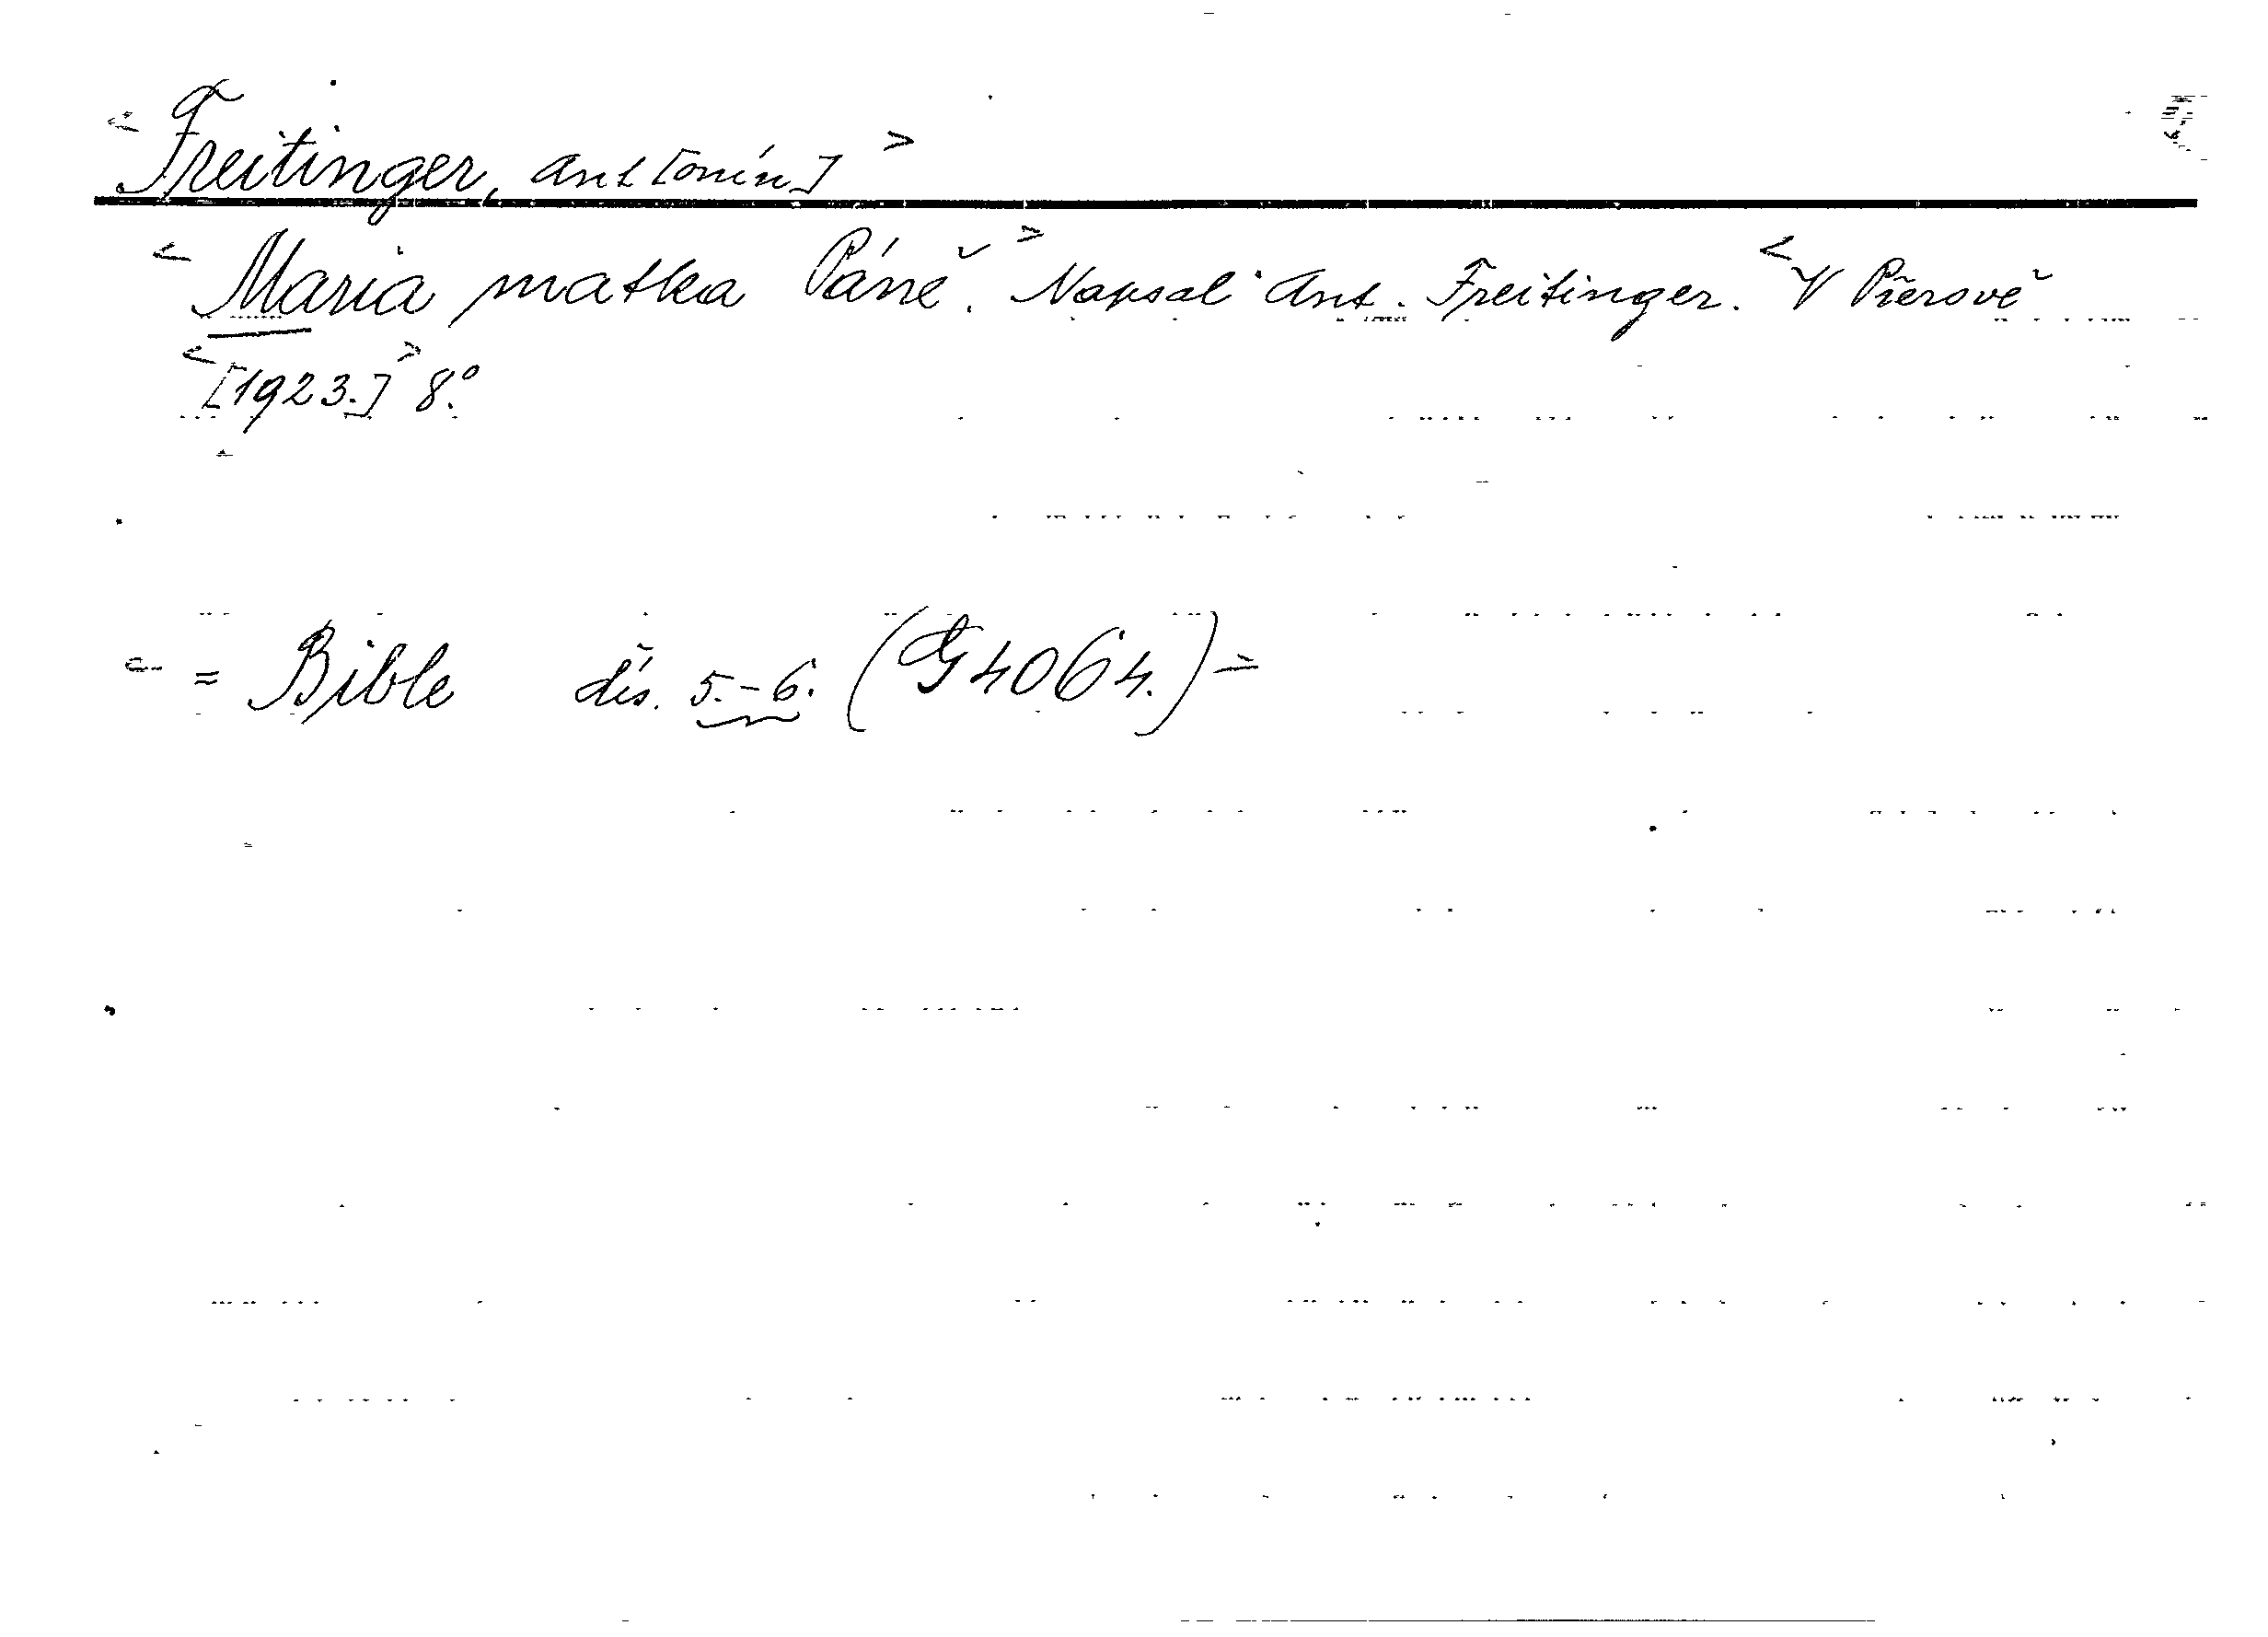 < Freitinger, Ant[onín] >
< Maria matka Páně. > Napsal Ant. Freitinger. < V Přerově
< [1923.] > 8.°
= Bible čís. 5.-6. (G 4064.) =